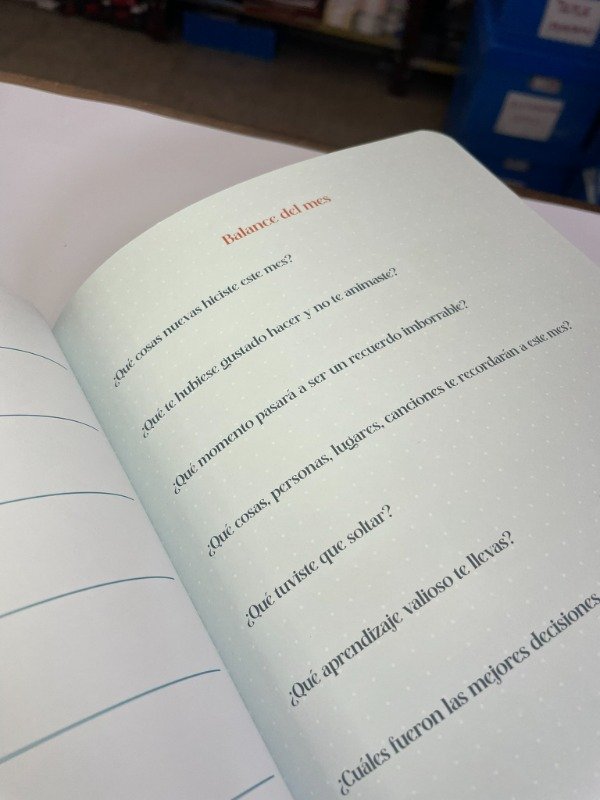 Balance del mes
¿Qué cosas nuevas hiciste este mes?
¿Qué te hubiese gustado hacer y no te animaste?
¿Qué momento pasará a ser un recuerdo imborrable?
¿Qué cosas, personas, lugares, canciones te recordarán a este mes?
¿Qué tuviste que soltar?
¿Qué aprendizaje valioso te llevas?
¿Cuáles fueron las mejores decisiones